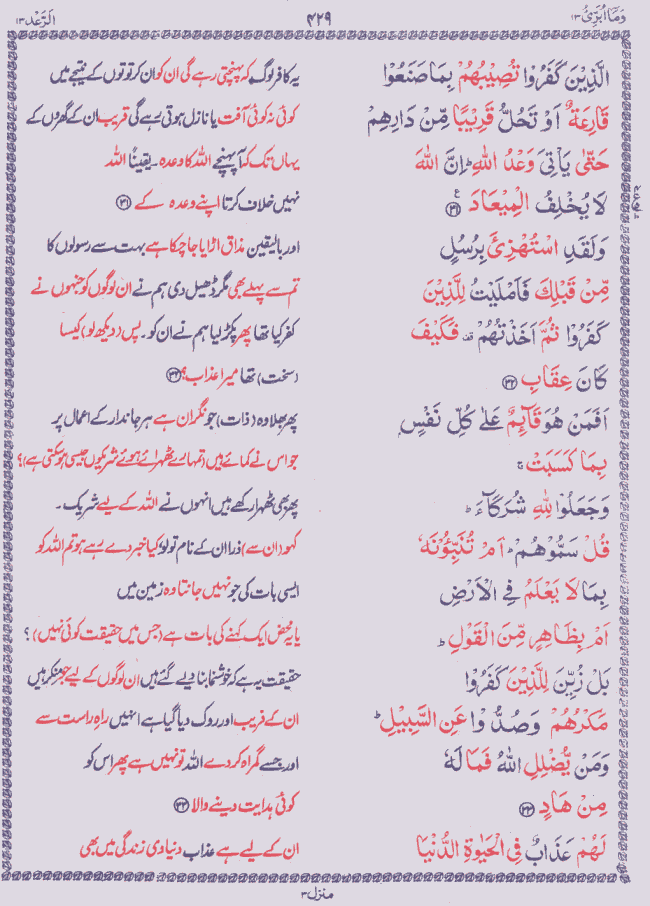 وَمَآ اُبَرِّئُ ۱۳
۴۲۹
اَلرَّعْد ۱۳
الَّذِیْنَ کَفَرُوْا تُصِیْبُهُمْ بِمَا صَنَعُوْا
یہ کافر لوگ کہ پہنچتی رہے گی ان کو ان کرتوتوں کے نتیجے میں
قَارِعَةٌ اَوْ تَحُلُّ قَرِیْبًا مِّنْ دَارِهِمْ
کوئی نہ کوئی آفت یا نازل ہوتی رہے گی قریب ان کے گھروں کے
حَتّٰی یَاْتِیَ وَعْدُ اللّٰهِ ؕ اِنَّ اللّٰهَ
یہاں تک کہ آ پہنچے اللہ کا وعدہ۔ یقیناً اللہ
لَا یُخْلِفُ الْمِیْعَادَ ﴿۳۱﴾ ع
نہیں خلاف کرتا اپنے وعدہ کے ﴿۳۱﴾
وَلَقَدِ اسْتُهْزِئَ بِرُسُلٍ
اور بالیقین مذاق اڑایا جا چکا ہے بہت سے رسولوں کا
مِّنْ قَبْلِكَ فَاَمْلَیْتُ لِلَّذِیْنَ
تم سے پہلے بھی مگر ڈھیل دی ہم نے ان لوگوں کو جنہوں نے
کَفَرُوْا ثُمَّ اَخَذْتُهُمْ قف فَکَیْفَ
کفر کیا تھا پھر پکڑ لیا ہم نے ان کو۔ پس (دیکھ لو) کیسا
کَانَ عِقَابِ ﴿۳۲﴾
(سخت) تھا میرا عذاب؟ ﴿۳۲﴾
اَفَمَنْ هُوَ قَآئِمٌ عَلٰی کُلِّ نَفْسٍ
پھر بھلا وہ (ذات) جو نگران ہے ہر جاندار کے اعمال پر
بِمَا کَسَبَتْ ۚ
جو اس نے کمائے ہیں (تمہارے ٹھہرائے ہوئے شریکوں جیسی ہو سکتی ہے)؟
وَجَعَلُوْا لِلّٰهِ شُرَکَآءَ ؕ
پھر بھی ٹھہرا رکھے ہیں انہوں نے اللہ کے لیے شریک۔
قُلْ سَمُّوْهُمْ ؕ اَمْ تُنَبِّئُوْنَهٗ
کہو (ان سے) ذرا ان کے نام تو لو، کیا خبر دے رہے ہو تم اللہ کو
بِمَا لَا یَعْلَمُ فِی الْاَرْضِ
ایسی بات کی جو نہیں جانتا وہ زمین میں
اَمْ بِظَاهِرٍ مِّنَ الْقَوْلِ ؕ
یا یہ محض ایک کہنے کی بات ہے (جس میں حقیقت کوئی نہیں)؟
بَلْ زُیِّنَ لِلَّذِیْنَ کَفَرُوْا
حقیقت یہ ہے کہ خوشنما بنا دیے گئے ہیں ان لوگوں کے لیے جو منکر ہیں
مَکْرُهُمْ وَصُدُّوْا عَنِ السَّبِیْلِ ؕ
ان کے فریب اور روک دیا گیا ہے انہیں راہِ راست سے
وَمَنْ یُّضْلِلِ اللّٰهُ فَمَا لَهٗ
اور جسے گمراہ کر دے اللہ تو نہیں ہے پھر اس کو
مِنْ هَادٍ ﴿۳۳﴾
کوئی ہدایت دینے والا ﴿۳۳﴾
لَهُمْ عَذَابٌ فِی الْحَیٰوةِ الدُّنْیَا
ان کے لیے ہے عذاب دنیاوی زندگی میں بھی
منزل ۳